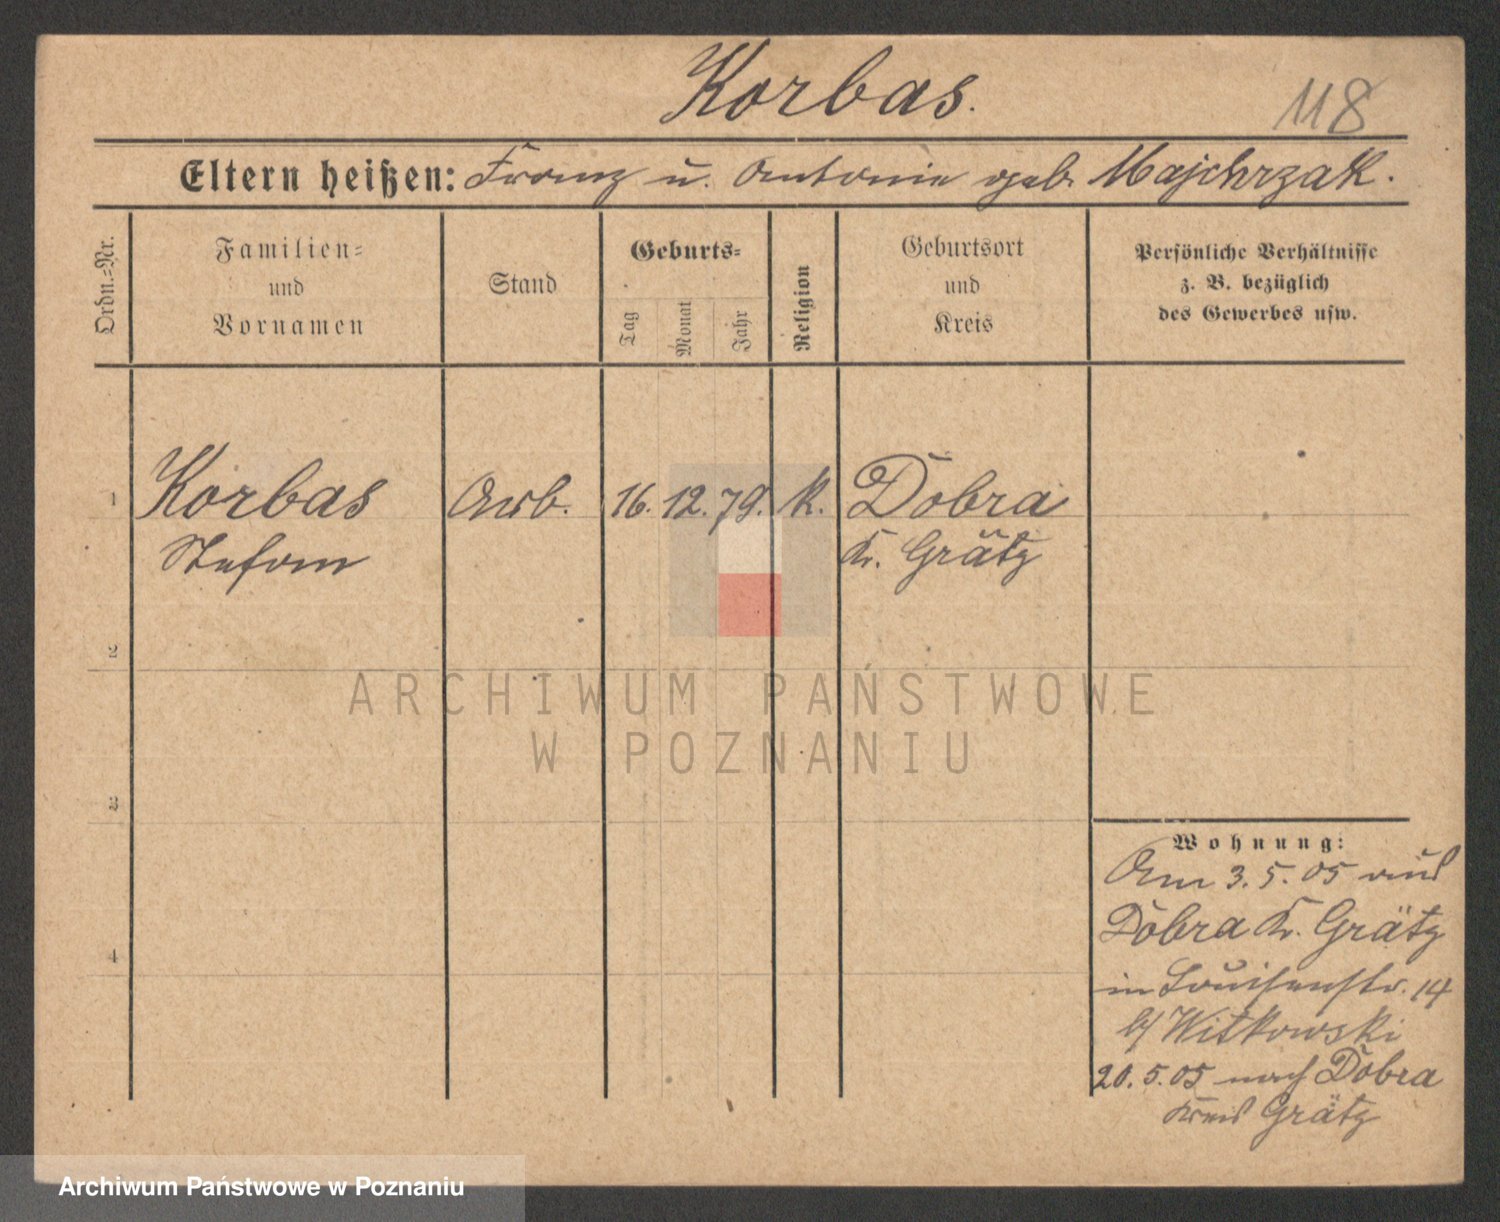 Korbas.
118
Eltern heißen: Franz u. Antonie geb. Majchrzak.
Ordn.=Nr.
Familien=
und
Vornamen
Stand
Geburts=
Tag
Monat
Jahr
Religion
Geburtsort
und
Kreis
Persönliche Verhältnisse
z. B. bezüglich
des Gewerbes usw.
1 Korbas Arb. 16. 12. 79. k. Dobra
Stefan Kr. Grätz
2
ARCHIWUM PAŃSTWOWE
W POZNANIU
3
Wohnung:
Am 3. 5. 05 aus
Dobra Kr. Grätz
4
in Louisenstr. 14
b/ Witkowski
20. 5. 05 nach Dobra
Kreis Grätz
Archiwum Państwowe w Poznaniu